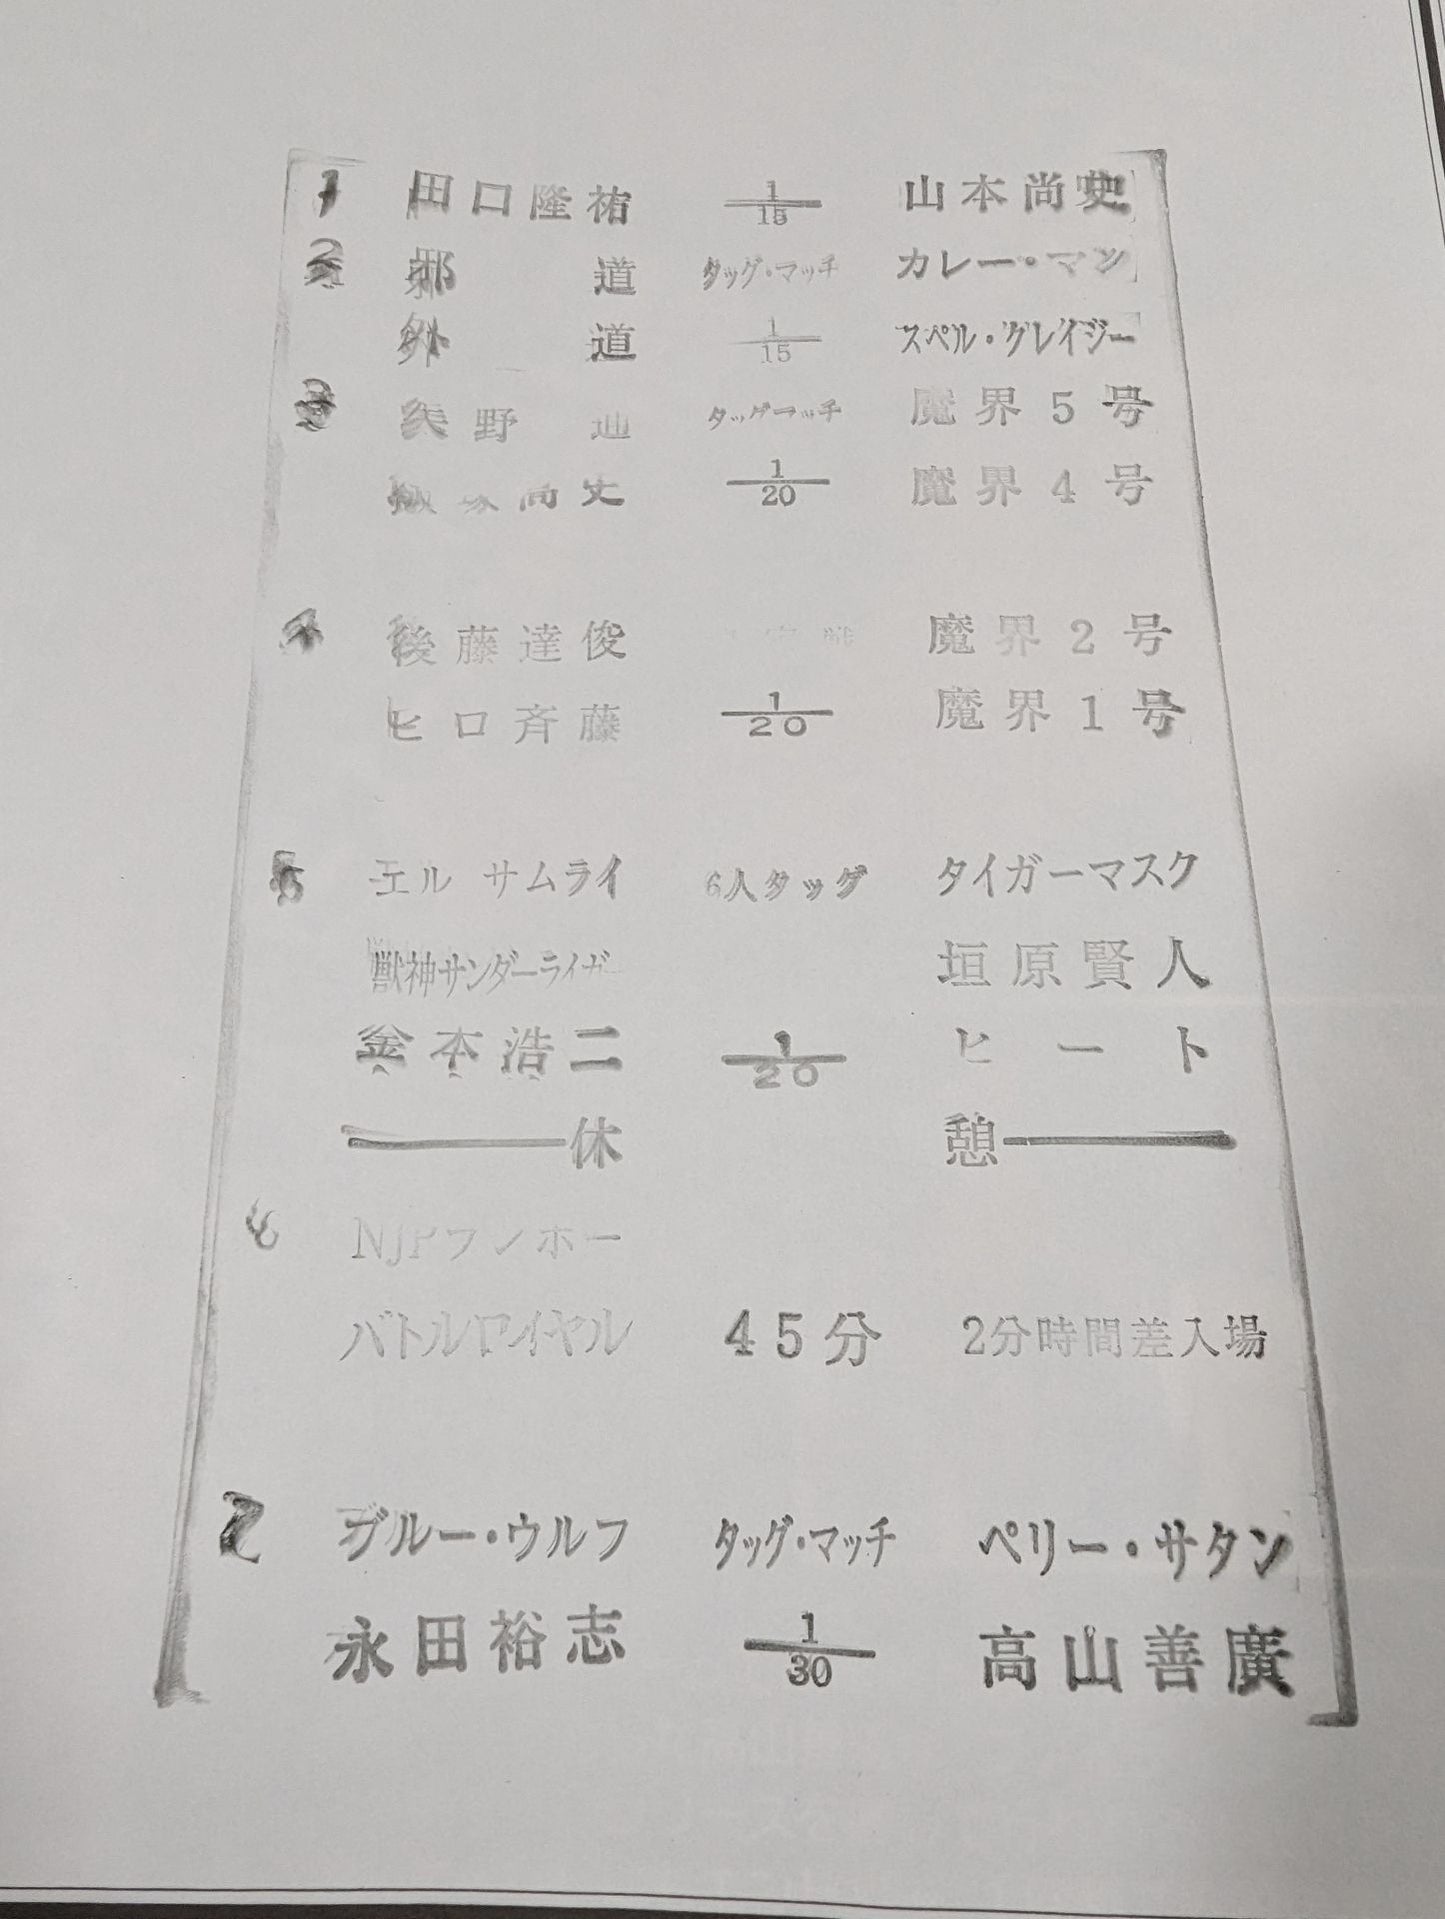 1 田口隆祐 1/15 山本尚史
2 邪道 タッグ・マッチ カレー・マン
外道 1/15 スペル・クレイジー
3 矢野 タッグマッチ 魔界5号
尚史 1/20 魔界4号
4 後藤達俊 魔界2号
ヒロ斉藤 1/20 魔界1号
5 エル サムライ 6人タッグ タイガーマスク
獣神サンダーライガー 垣原賢人
金本浩二 1/20 ヒート
休 憩
6 NJPランボー
バトルロイヤル 45分 2分時間差入場
7 ブルー・ウルフ タッグ・マッチ ペリー・サタン
永田裕志 1/30 高山善廣